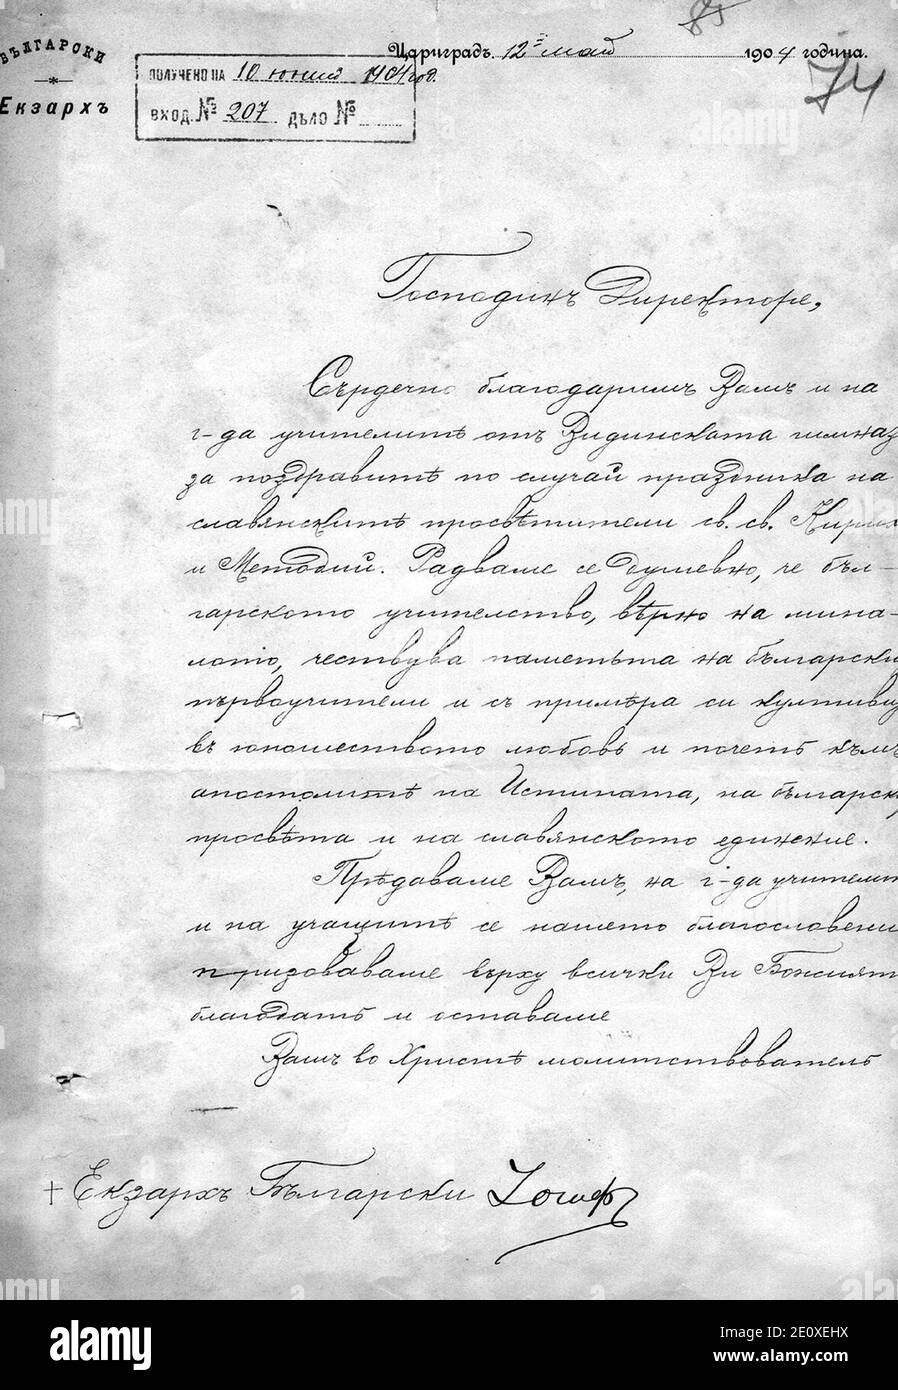 85
БЪЛГАРСКИ
Екзархъ
Цариградъ, 12й май 1904 година.
74
ПОЛУЧЕНО НА 10 юний 1904 год.
ВХОД. № 207 ДѢЛО №
Господинъ Директоре,
Сърдечно благодаримъ Вамъ и на
г-да учителитѣ отъ Видинската гимназ
за поздравитѣ по случай праздника на
славянскитѣ просвѣтители св. св. Кирил
и Методий. Радваме се душевно, че бъл-
гарското учителство, вѣрно на мина-
лото, чествува паметьта на български
първоучители и съ примѣра си култивир
въ юношеството любовь и почеть къмъ
апостолитѣ на Истината, на българск
просвѣта и на славянското единение.
Прѣдаваме Вамъ, на г-да учители
и на учащитѣ се нашето благословени
призоваваме върху всички Ви Божият
благодать и оставаме
Вамъ во Христѣ молитствователь
† Екзархъ Български Йосифъ
alamy
alamy
Image ID: 2E0XEHX
www.alamy.com